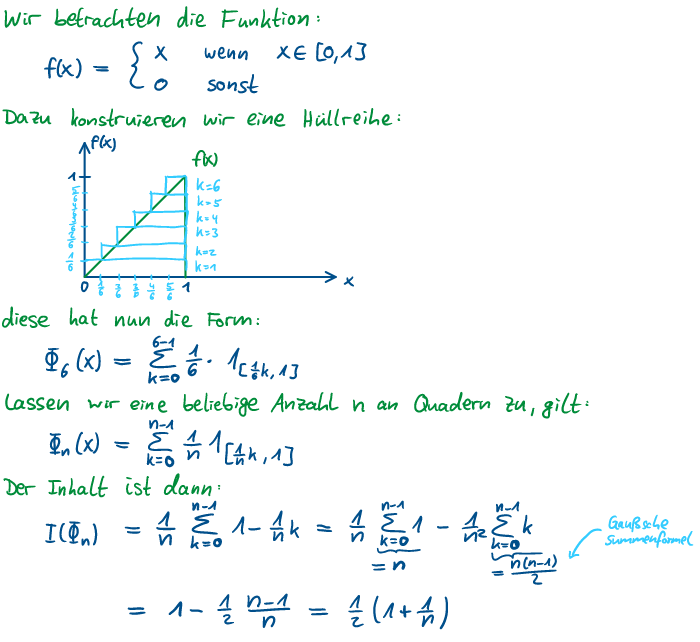 Wir betrachten die Funktion:
f(x) = { x wenn x ∈ [0,1]
0 sonst
Dazu konstruieren wir eine Hüllreihe:
f(x)
f(x)
1
k=6
k=5
k=4
k=3
k=2
k=1
0 1/6 2/6 3/6 4/6 5/6 1 x
diese hat nun die Form:
Φ₆(x) = ∑_{k=0}^{6-1} 1/6 · 1_{[1/6 k, 1]}
Lassen wir eine beliebige Anzahl n an Quadern zu, gilt:
Φₙ(x) = ∑_{k=0}^{n-1} 1/n 1_{[1/n k, 1]}
Der Inhalt ist dann:
I(Φₙ) = 1/n ∑_{k=0}^{n-1} 1 - 1/n k = 1/n ∑_{k=0}^{n-1} 1 - 1/n² ∑_{k=0}^{n-1} k
= n
= n(n-1)/2
Gaußsche
Summenformel
= 1 - 1/2 n-1/n = 1/2 (1 + 1/n)